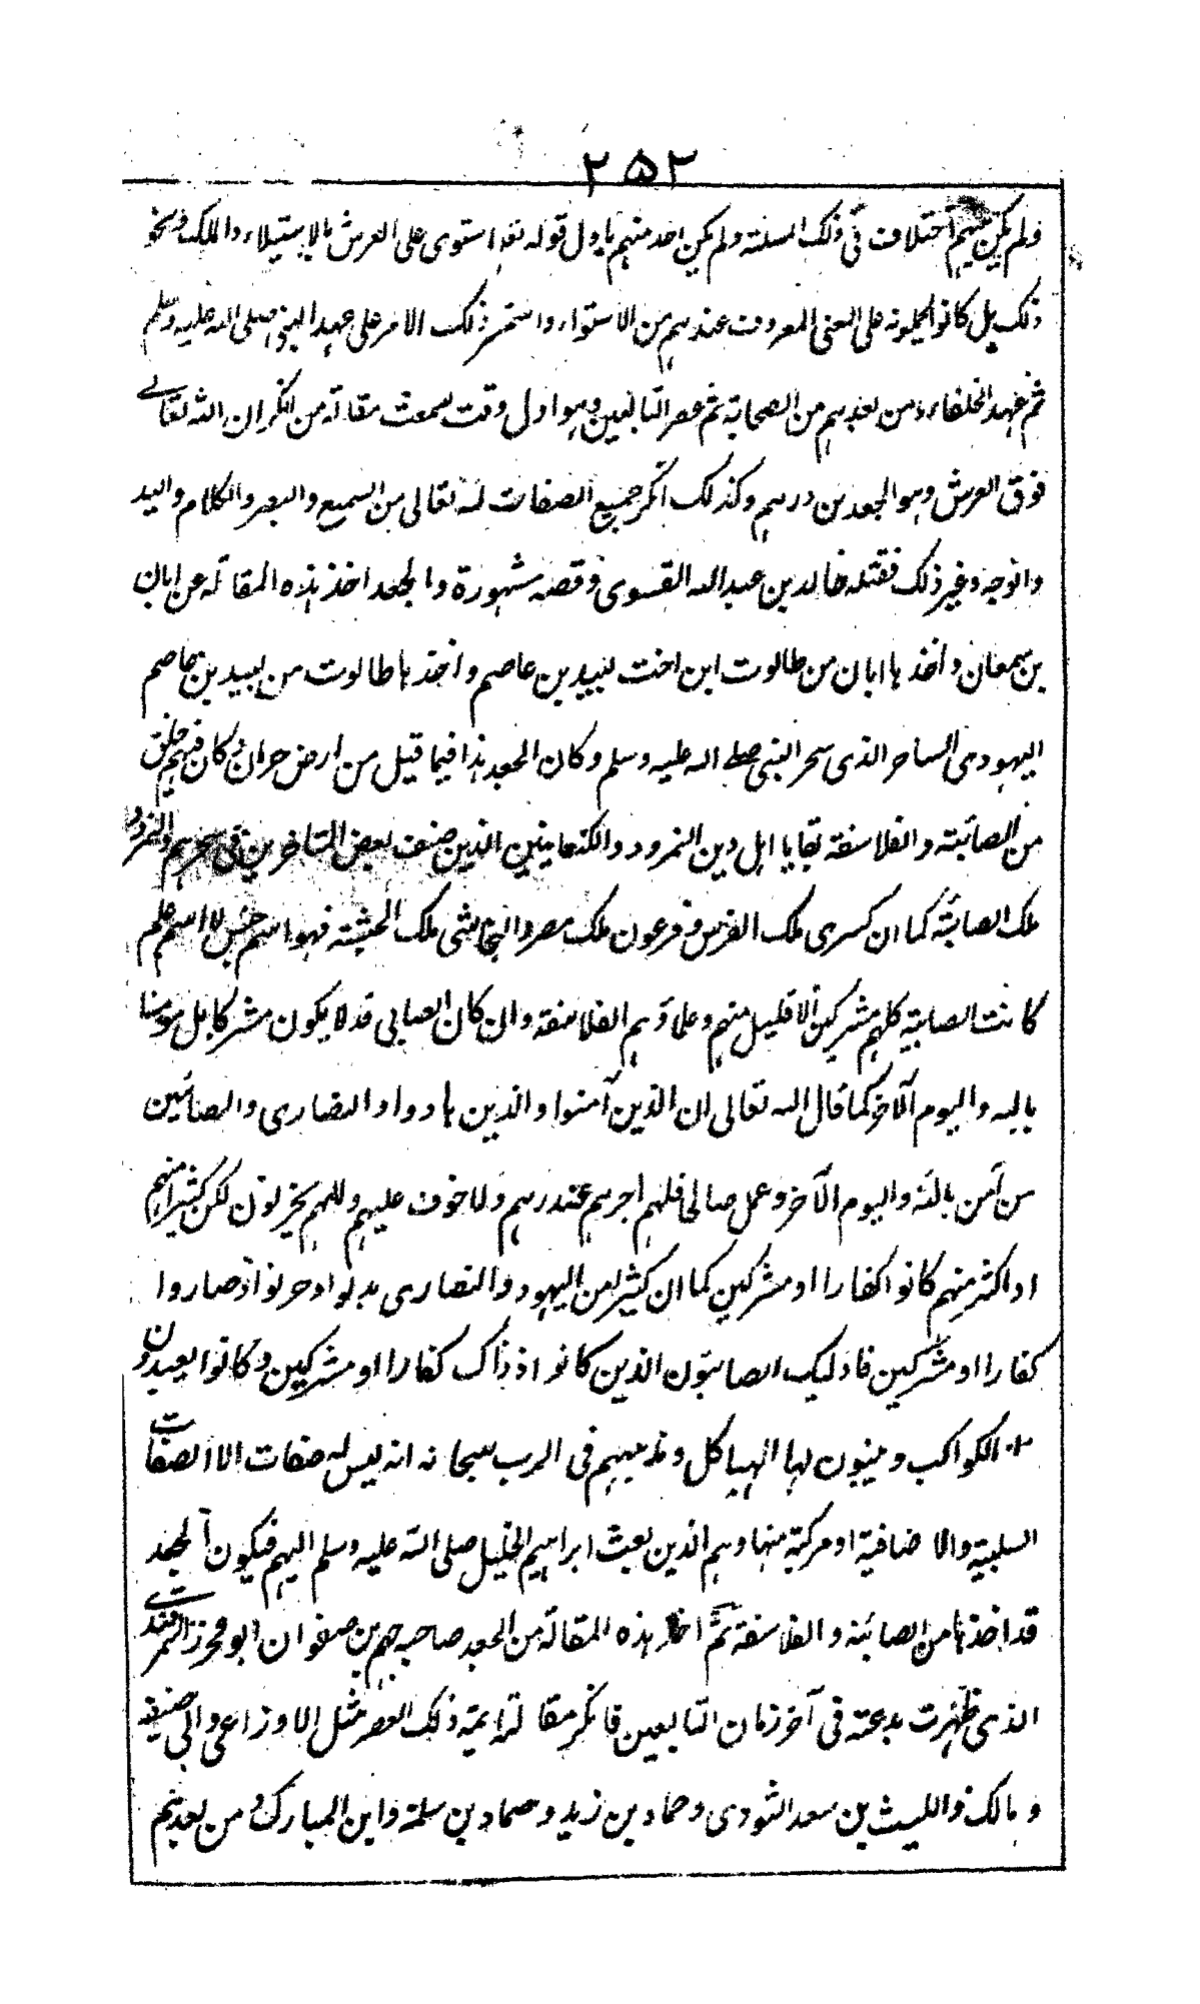 ٢٥٢
ولم يكن بينهم اختلاف في ذلك المسئلة ولم يكن احد منهم ياول قوله تعا استوى على العرش بالاستيلاء والملك ونحو
ذلك بل كانوا يحملونه على المعنى المعروف عندهم من الاستواء واستمر ذلك الامر على عهد النبي صلى الله عليه وسلم
ثم عهد الخلفاء ومن بعدهم من الصحابة ثم عصر التابعين وهو اول وقت سمعت مقالة من انكر ان الله تعالے
فوق العرش وهو الجعد بن درهم وكذلك انكر جميع الصفات له تعالى من السميع والبصر والكلام واليد
والوجه وغير ذلك فقتله خالد بن عبد الله القسوى وقصه مشهورة والجعد اخذ هذه المقالة عن ابان
بن سمعان واخذها ابان من طالوت ابن اخت لبيد بن عاصم واخذها طالوت من لبيد بن عاصم
اليهودى الساحر الذى سحر النبى صلے الله عليه وسلم وكان الجعد هذا فيما قيل من ارض حران وكان فيهم خلق
من الصائبة والفلاسفة بقايا اهل دين النمرود والكنعانيين الذين صنف بعض المتاخرين فى سحرهم والنمرود
ملك الصابئة كما ان كسرى ملك الفرس وفرعون ملك مصر والنجاشى ملك الحبشة فهو اسم جنس لا اسم علم
كانت الصابئة كلهم مشركين الا قليل منهم وعلماؤهم الفلاسفة وان كان الصابى قد لا يكون مشركا بل مومنا
بالله واليوم الآخر كما قال الله تعالى ان الذين آمنوا والذين هادوا والنصارى والصائبين
من آمن بالله واليوم الآخر وعمل صالحا فلهم اجرهم عند ربهم ولا خوف عليهم ولا هم يحزنون لكن كثيرا منهم
او اكثر منهم كانوا كفارا او مشركين كما ان كثير من اليهود والنصارى بدلوا وحرفوا وصاروا
كفارا او مشركين فاوليك الصابئون الذين كانوا اذ ذاك كفارا او مشركين وكانوا يعبدون
الكواكب ويبنون لها الهياكل ومذهبهم فى الرب سبحانه انه ليس له صفات الا الصفات
السلبية والاضافية او مركبة منها وهم الذين بعث ابراهيم الخليل صلى الله عليه وسلم اليهم فيكون الجعد
قد اخذها من الصائبة والفلاسفة ثم اخذ هذه المقالة من الجعد صاحبه جهم بن صفوان ابو محرز الترمذى
الذى ظهرت بدعته فى آخر زمان التابعين فانكر مقالته ايمة ذلك العصر مثل الاوزاعى وابى حنيفة
ومالك والليث بن سعد الثورى وحماد بن زيد وحماد بن سلمة وابن المبارك ومن بعدهم